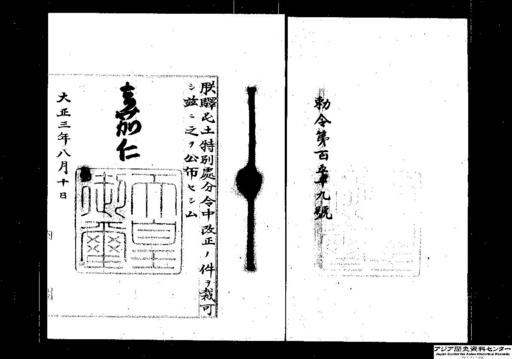 勅令第百五十九號
朕驛屯土特別處分令中改正ノ件ヲ裁可
シ茲ニ之ヲ公布セシム
嘉仁
天皇
御璽
大正三年八月十日
アジア歴史資料センター
Japan Center for Asian Historical Records